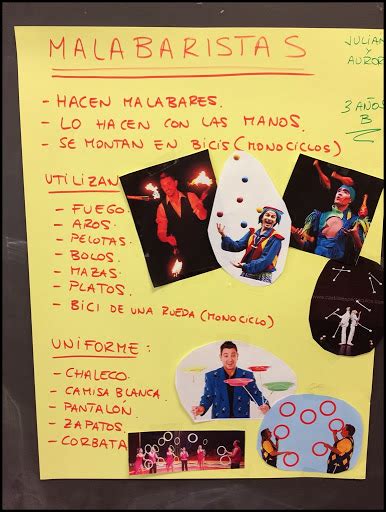 MALABARISTAS
JULIÁN
Y
AUROR
3 AÑOS
B
- HACEN MALABARES.
- LO HACEN CON LAS MANOS.
- SE MONTAN EN BICIS (MONOCICLOS)
UTILIZAN
- FUEGO.
- AROS.
- PELOTAS.
- BOLOS.
- MAZAS.
- PLATOS.
- BICI DE UNA RUEDA (MONOCICLO)
UNIFORME :
- CHALECO.
- CAMISA BLANCA.
- PANTALÓN.
- ZAPATOS.
- CORBATA